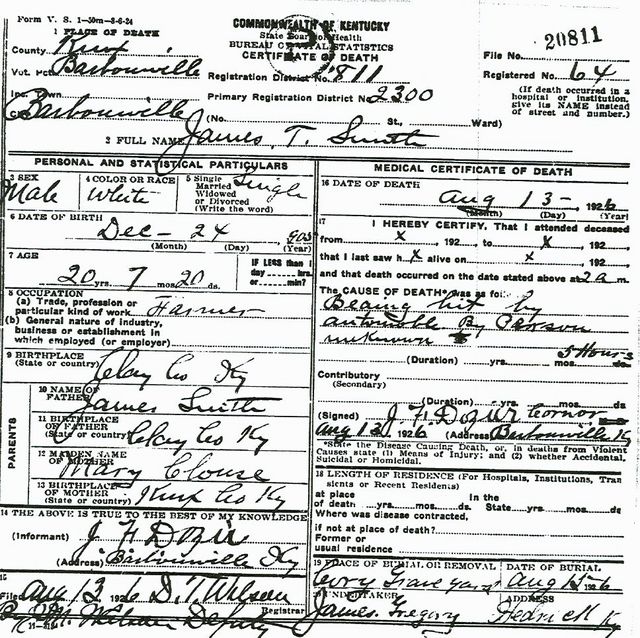 Form V. S. 1—50m—8-6-24
COMMONWEALTH OF KENTUCKY
State Board of Health
BUREAU OF VITAL STATISTICS
CERTIFICATE OF DEATH
1 PLACE OF DEATH
County Knox
Vot. Pct. Barbourville
Inc. Town Barbourville
Registration District No. 811
Primary Registration District No. 2300
File No. 20811
Registered No. 64
(If death occurred in a
hospital or institution,
give its NAME instead
of street and number.)
(No. St., Ward)
2 FULL NAME James T. Smith
PERSONAL AND STATISTICAL PARTICULARS
3 SEX
Male
4 COLOR OR RACE
White
5 Single
Married
Widowed
or Divorced
(Write the word)
Single
6 DATE OF BIRTH
Dec - 24 905
(Month) (Day) (Year)
7 AGE
20 yrs. 7 mos. 20 ds.
IF LESS than 1
day hrs.
or min?
8 OCCUPATION
(a) Trade, profession or
particular kind of work Farmer
(b) General nature of industry,
business or establishment in
which employed (or employer)
9 BIRTHPLACE
(State or country) Clay Co Ky
PARENTS
10 NAME OF
FATHER James Smith
11 BIRTHPLACE
OF FATHER
(State or country) Clay Co Ky
12 MAIDEN NAME
OF MOTHER Mary Clouse
13 BIRTHPLACE
OF MOTHER
(State or country) Knox Co Ky
14 THE ABOVE IS TRUE TO THE BEST OF MY KNOWLEDGE
(Informant) J F Dozir
(Address) Barbourville Ky
15
Filed Aug 13 1926 D. T. Wilson
Registrar
Wilson Deputy
MEDICAL CERTIFICATE OF DEATH
16 DATE OF DEATH
Aug 13 - , 1926
(Month) (Day) (Year)
17
I HEREBY CERTIFY, That I attended deceased
from x , 192 , to x , 192
that I last saw h x alive on x , 192
and that death occurred on the date stated above at 2 a m.
The CAUSE OF DEATH* was as fol
Beaing hit by
automoble By Person
unknown
5 Hours
(Duration) yrs. mos. ds.
Contributory
(Secondary)
(Duration) yrs. mos. ds.
(Signed) J F Dozir Cornor
Aug 13 1926 (Address) Barbourville Ky
*State the Disease Causing Death, or, in deaths from Violent
Causes state (1) Means of Injury; and (2) whether Accidental,
Suicidal or Homicidal.
18 LENGTH OF RESIDENCE (For Hospitals, Institutions, Tran
sients or Recent Residents)
at place In the
of death yrs. mos. ds. State yrs. mos. ds.
Where was disease contracted,
if not at place of death?
Former or
usual residence
19 PLACE OF BURIAL OR REMOVAL
Grave yard
DATE OF BURIAL
Aug 15 - 6
20 UNDERTAKER
James Gregory
ADDRESS
Hedrick Ky